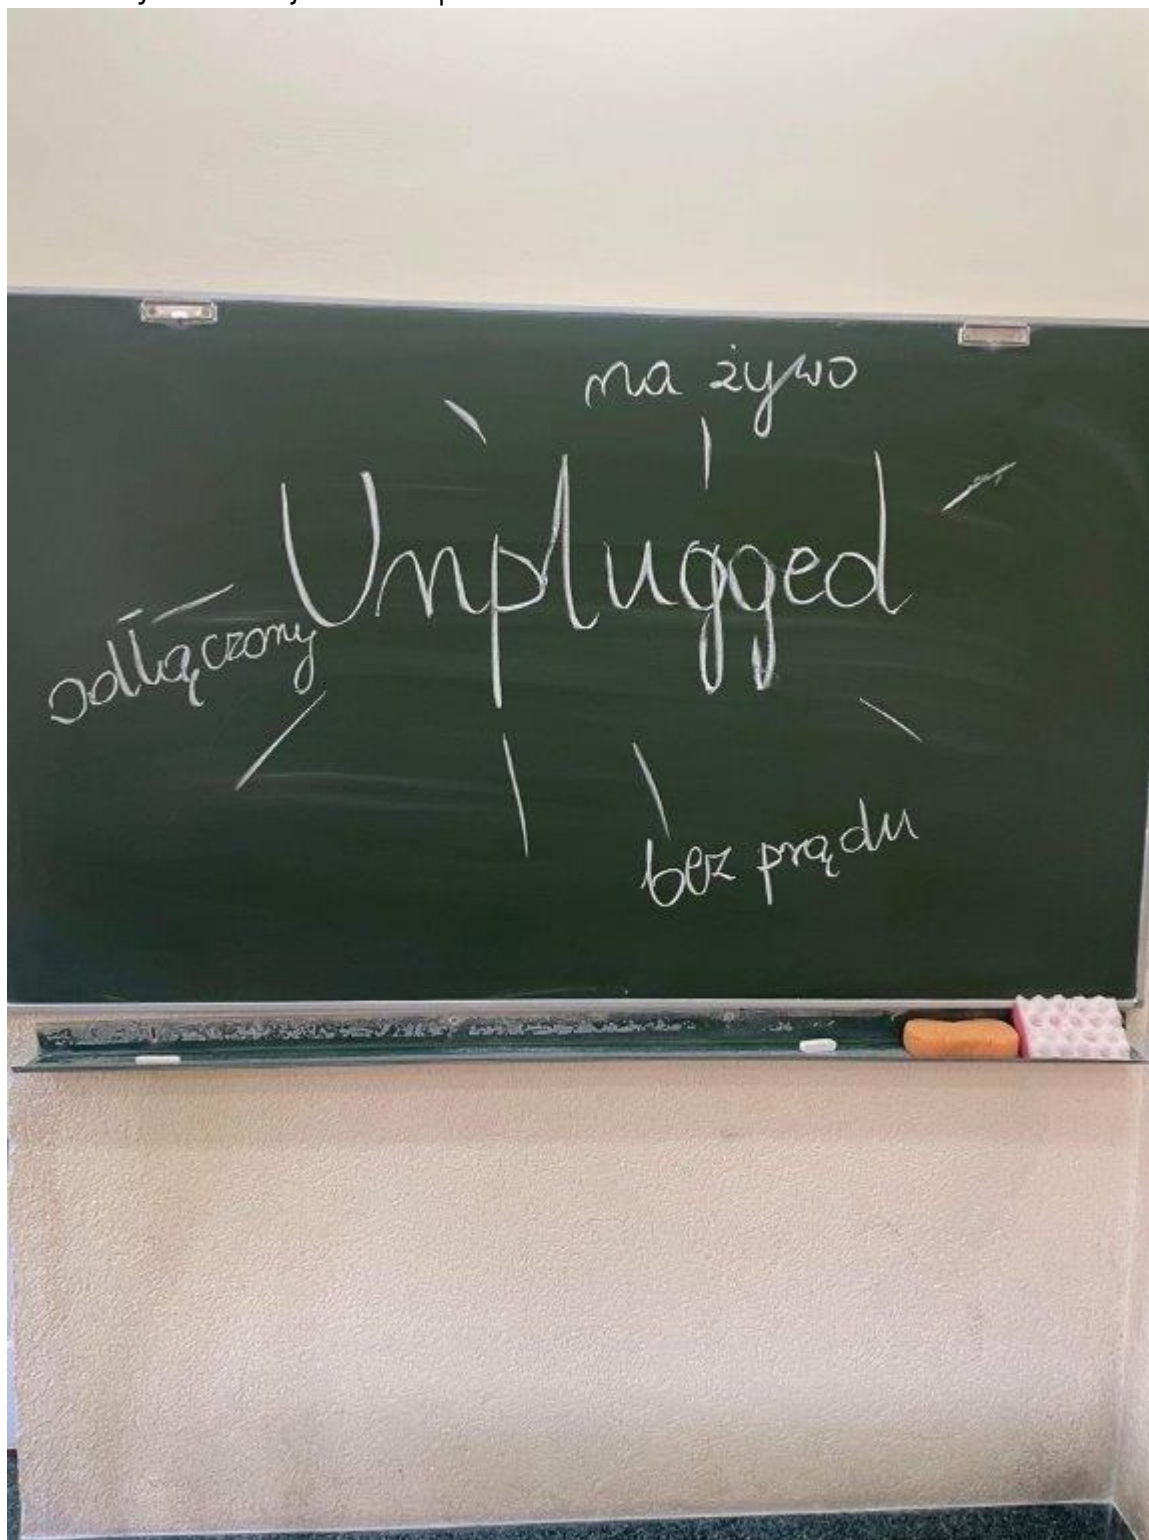 na żywo
Unplugged
odłączony
bez prądu